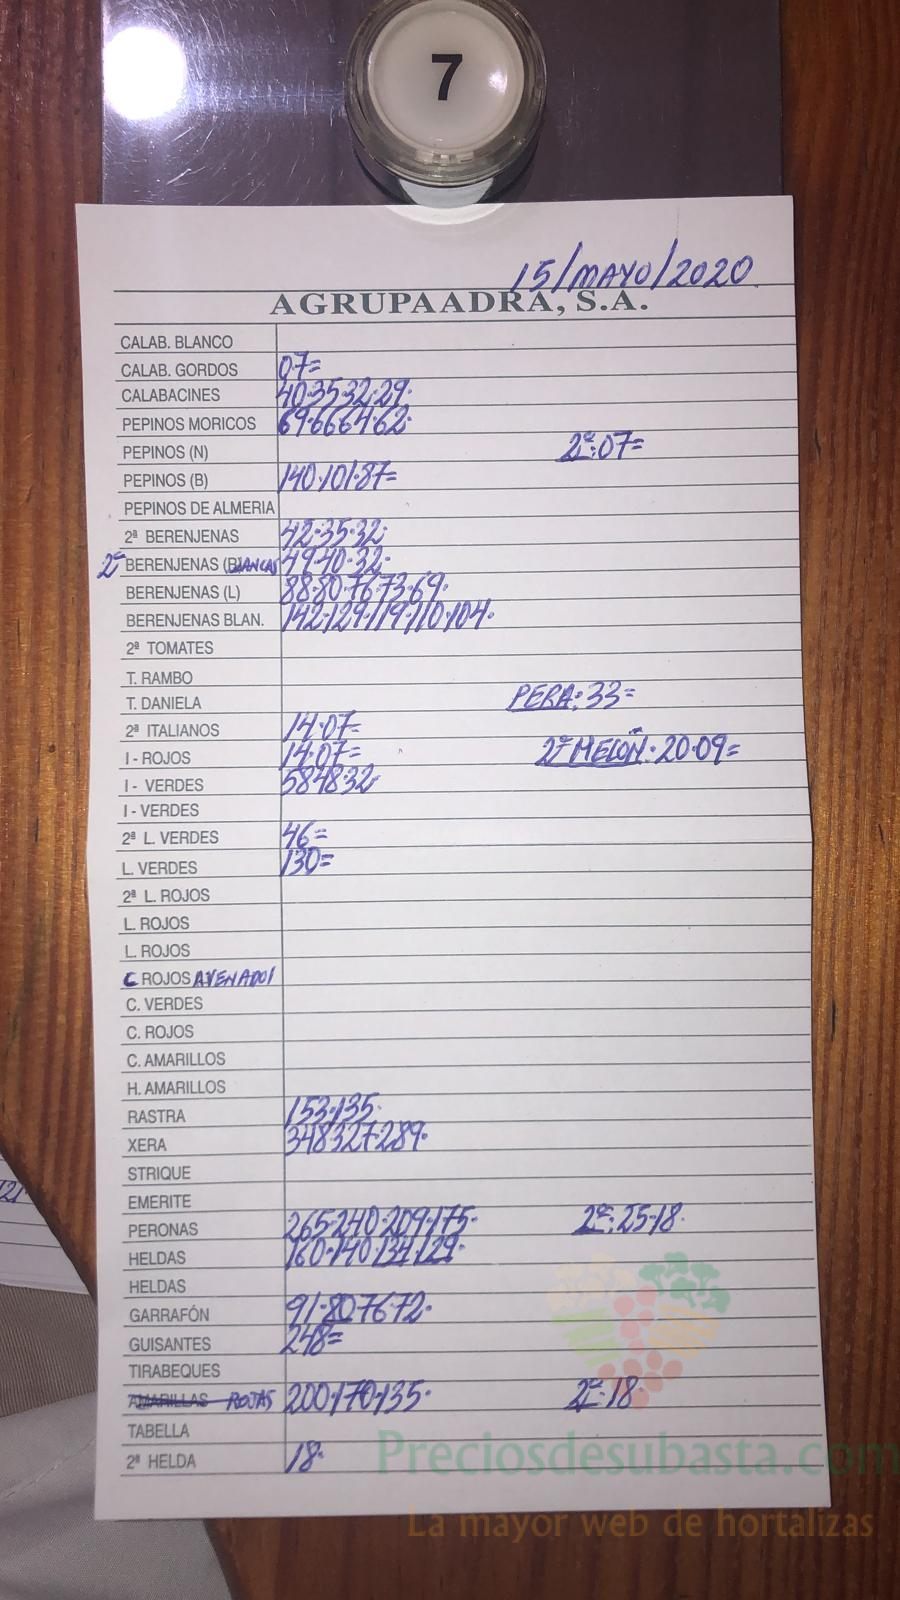 7
15/MAYO/2020
AGRUPAADRA, S.A.
CALAB. BLANCO
CALAB. GORDOS 07=
CALABACINES 40·35·32·29·
PEPINOS MORICOS 69·66·64·62·
PEPINOS (N) 2ª:07=
PEPINOS (B) 140·101·87=
PEPINOS DE ALMERIA
2ª BERENJENAS 42·35·32·
2ª BERENJENAS (BLANCAS 49·40·32·
BERENJENAS (L) 88·80·76·73·69·
BERENJENAS BLAN. 142·129·119·110·104·
2ª TOMATES
T. RAMBO
T. DANIELA PERA:33=
2ª ITALIANOS 14·07=
I - ROJOS 14·07= 2ª MELON·20·09=
I - VERDES 58·48·32·
I - VERDES
2ª L. VERDES 46=
L. VERDES 130=
2ª L. ROJOS
L. ROJOS
L. ROJOS
C ROJOS AVENADOS
C. VERDES
C. ROJOS
C. AMARILLOS
H. AMARILLOS
RASTRA 153·135·
XERA 348·327·289·
STRIQUE
EMERITE
PERONAS 265·240·209·175· 2ª:25·18·
HELDAS 160·140·134·129·
HELDAS
GARRAFÓN 91·80·76·72·
GUISANTES 248=
TIRABEQUES
AMARILLAS ROJAS 200·170·135· 2ª·18·
TABELLA
2ª HELDA 18·
Preciosdesubasta.com
La mayor web de hortalizas